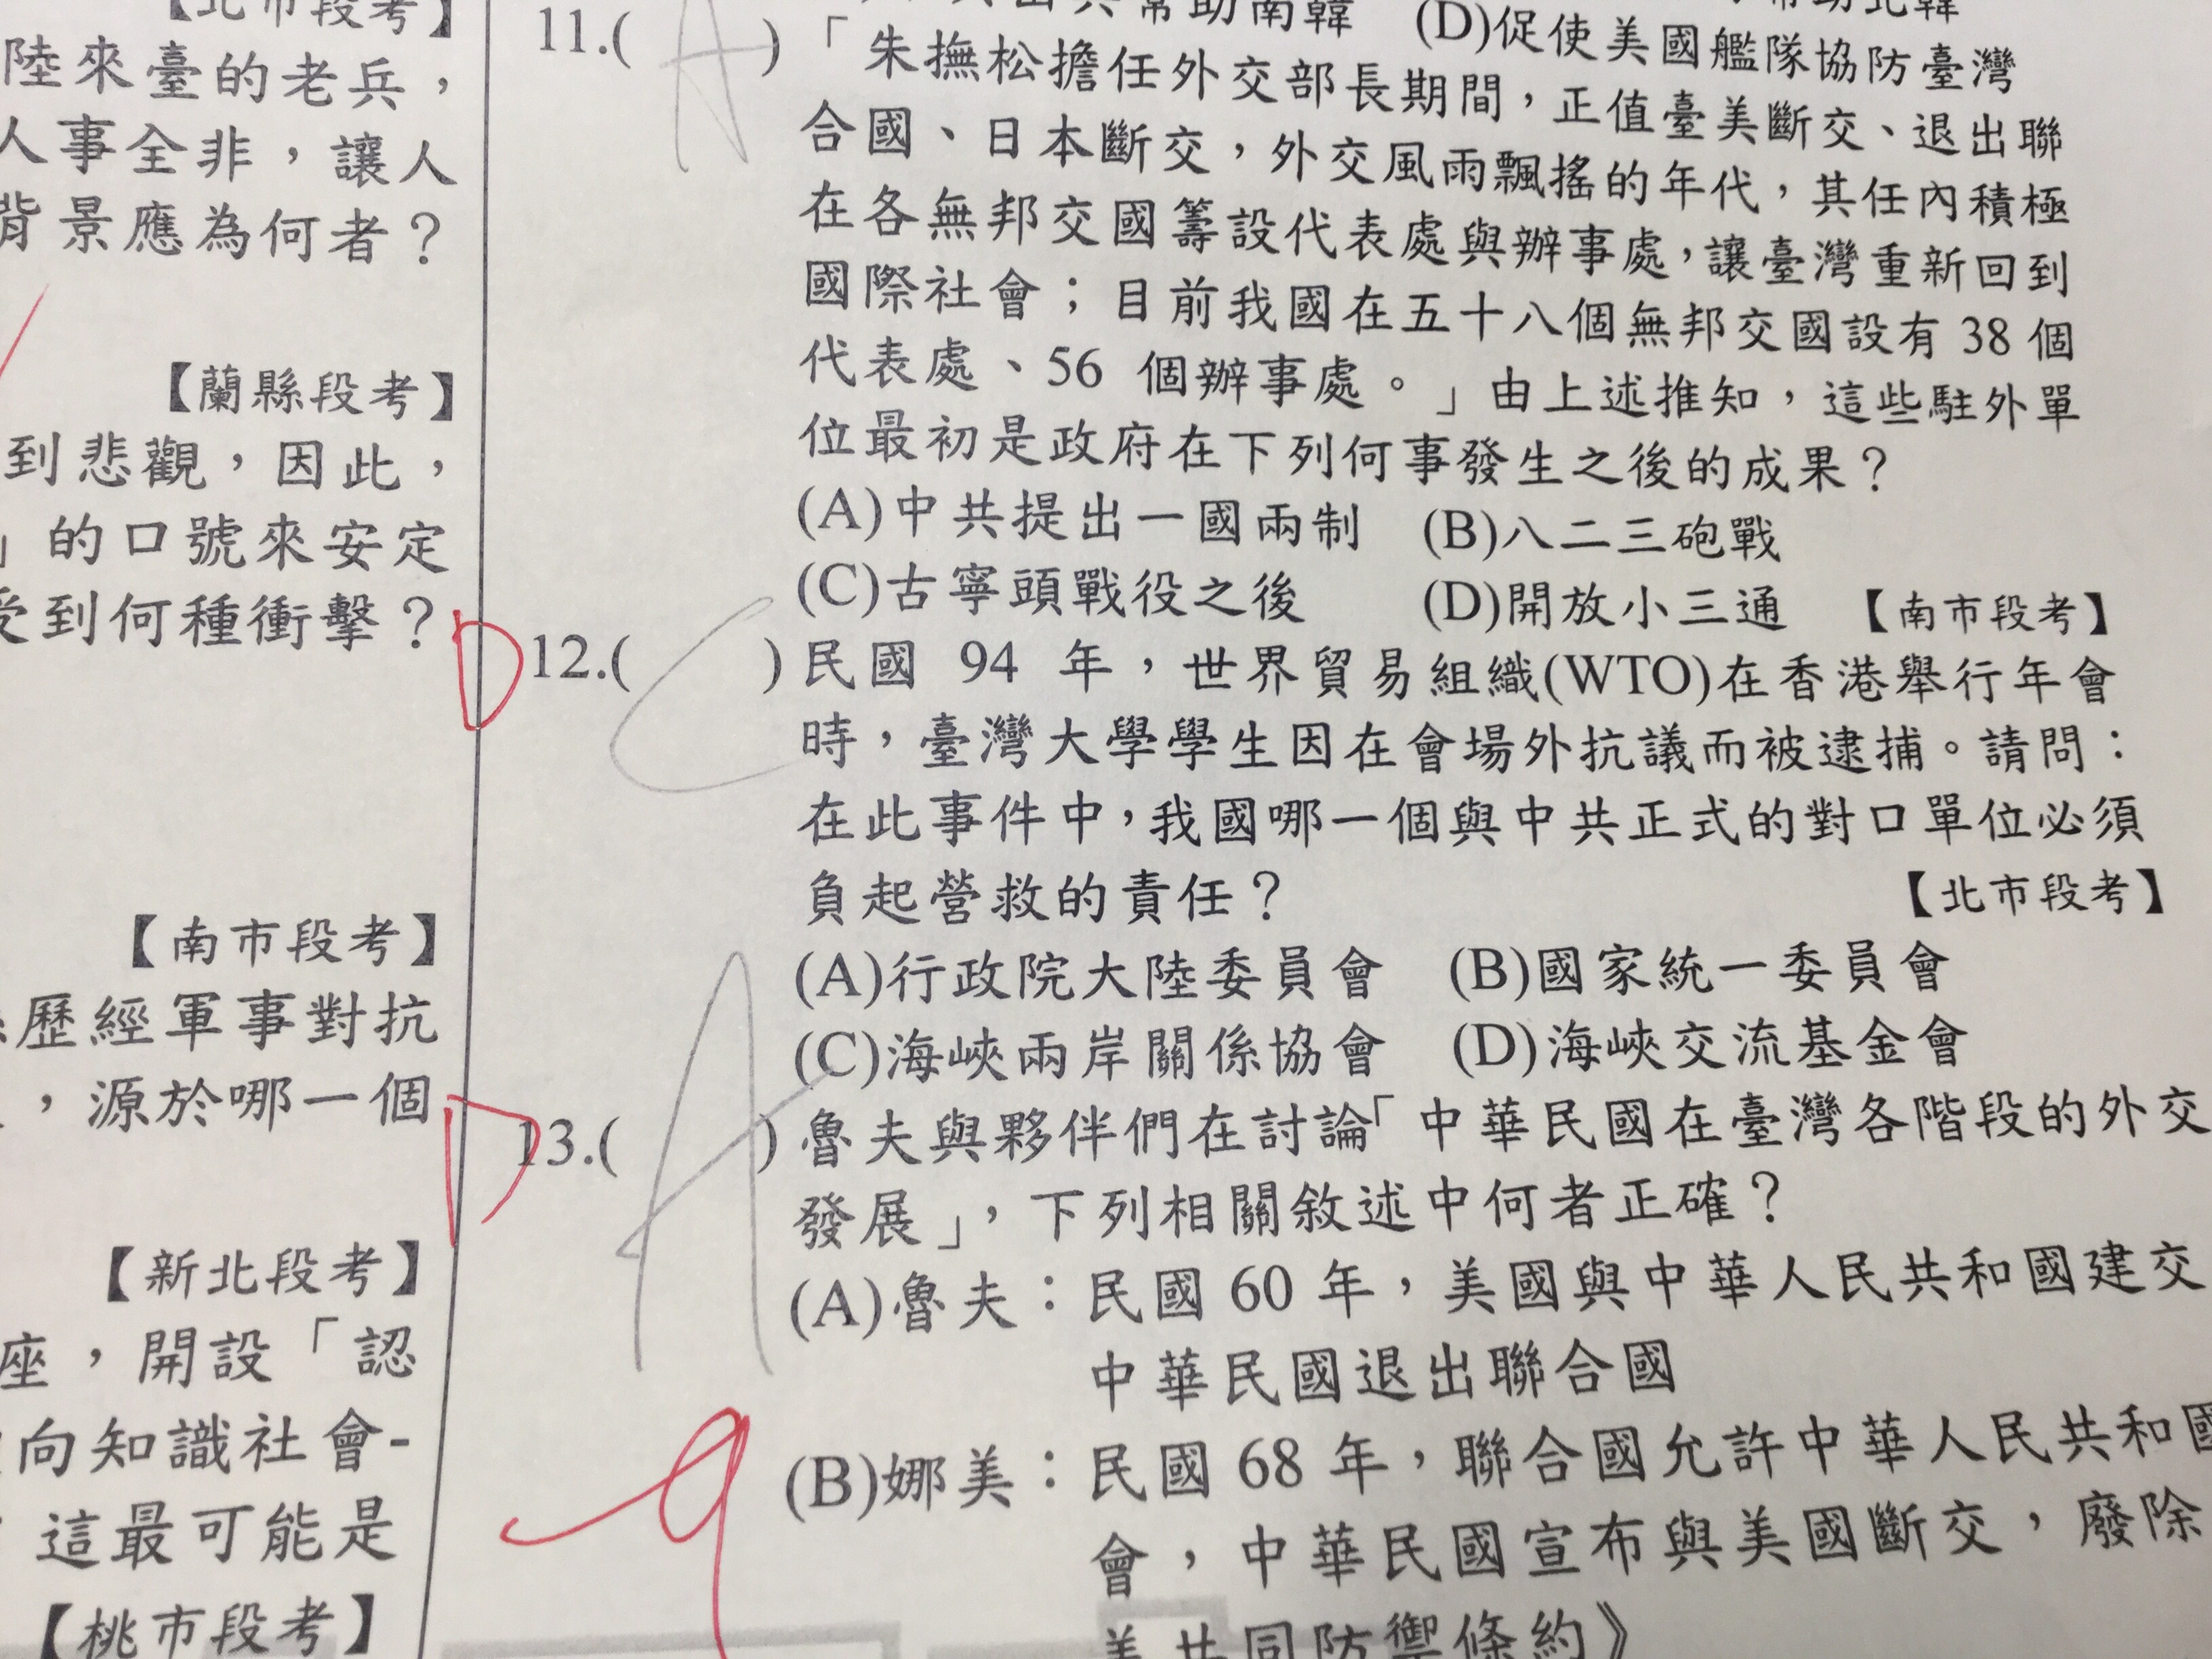 【北市段考】
陸來臺的老兵，
人事全非，讓人
背景應為何者？
【蘭縣段考】
到悲觀，因此，
」的口號來安定
受到何種衝擊？
【南市段考】
歷經軍事對抗
，源於哪一個
【新北段考】
座，開設「認
向知識社會-
這最可能是
【桃市段考】
幫助南韓 (D)促使美國艦隊協防臺灣
11.( A )「朱撫松擔任外交部長期間，正值臺美斷交、退出聯
合國、日本斷交，外交風雨飄搖的年代，其任內積極
在各無邦交國籌設代表處與辦事處，讓臺灣重新回到
國際社會；目前我國在五十八個無邦交國設有 38 個
代表處、56 個辦事處。」由上述推知，這些駐外單
位最初是政府在下列何事發生之後的成果？
(A)中共提出一國兩制 (B)八二三砲戰
(C)古寧頭戰役之後 (D)開放小三通 【南市段考】
D 12.( C )民國 94 年，世界貿易組織(WTO)在香港舉行年會
時，臺灣大學學生因在會場外抗議而被逮捕。請問：
在此事件中，我國哪一個與中共正式的對口單位必須
負起營救的責任？ 【北市段考】
(A)行政院大陸委員會 (B)國家統一委員會
(C)海峽兩岸關係協會 (D)海峽交流基金會
13.( A )魯夫與夥伴們在討論「中華民國在臺灣各階段的外交
發展」，下列相關敘述中何者正確？
(A)魯夫：民國 60 年，美國與中華人民共和國建交
中華民國退出聯合國
(B)娜美：民國 68 年，聯合國允許中華人民共和國
會，中華民國宣布與美國斷交，廢除
美共同防禦條約》